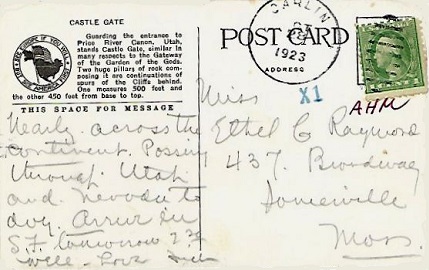 CASTLE GATE
Guarding the entrance to
Price River Canon, Utah,
stands Castle Gate, similar in
many respects to the Gateway
of the Garden of the Gods.
Two huge pillars of rock com-
posing it are continuations of
spurs of the Cliffs behind.
One measures 500 feet and
the other 450 feet from base to top.
THIS SPACE FOR MESSAGE
Nearly across the
continent. Passing
through Utah
and Nevada to
day. Arrive in
S.F. tomorrow
well - Love
CARLIN
1923
POST CARD
ADDRESS
X1
AHM
Miss
Ethel C Raymond
437 Broadway
Somerville
Mass.